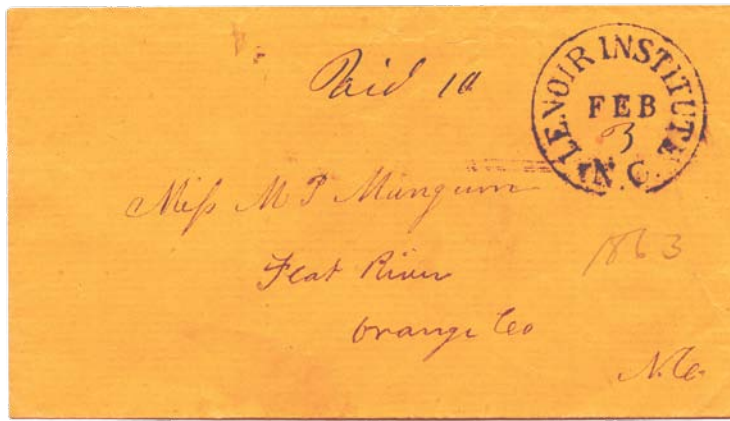 Paid 10
LENOIR INSTITUTE
FEB
3
N.C.
Miss M P Mangum
1863
Flat River
Orange Co
N.C.